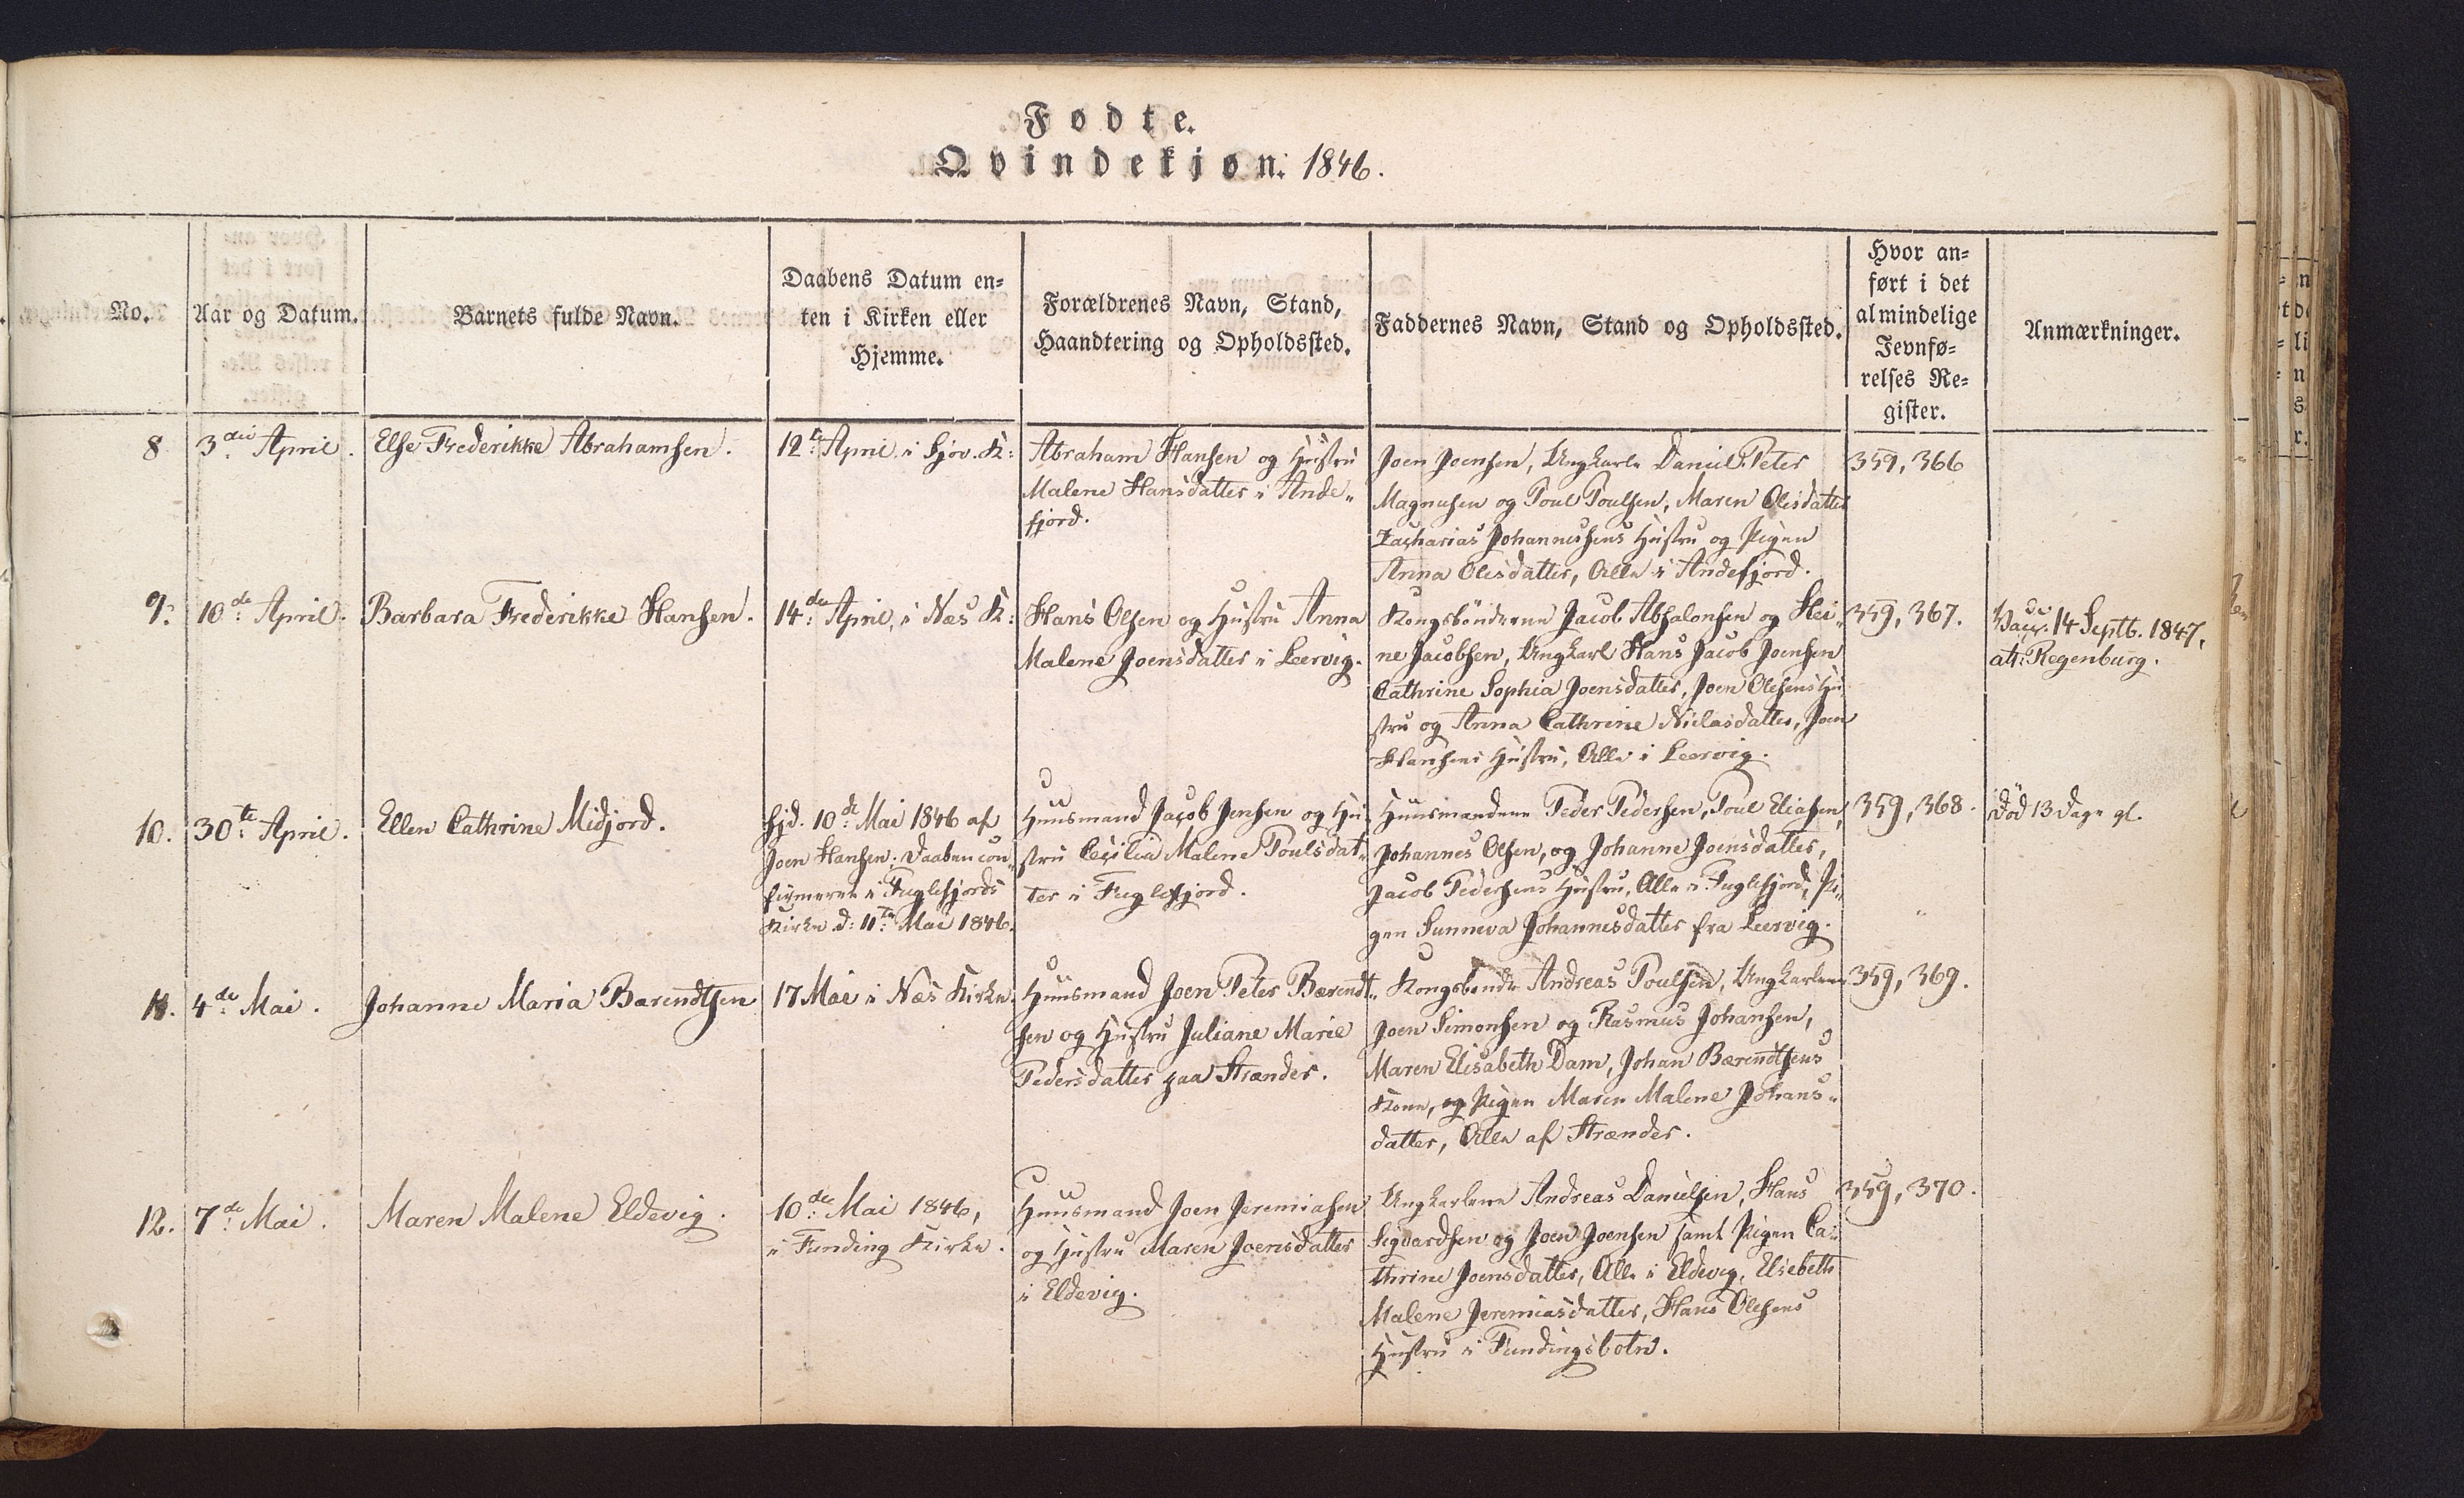 Fødte.
Qvindekjøn. 1846.
No.
Aar og Datum.
Barnets fulde Navn.
Daabens Datum en-
ten i Kirken eller
Hjemme.
Forældrenes Navn, Stand,
Haandtering og Opholdssted.
Faddernes Navn, Stand og Opholdssted.
Hvor an-
ført i det
almindelige
Jevnfø-
relses Re-
gister.
Anmærkninger.
8
3die April.
Else Frederikke Abrahamsen.
12te April i Gjov. K:
Abraham Hansen og Hustru
Malene Hansdatter i Ande-
fjord.
Joen Joensen, Ungkarle Daniel Peter
Magnusen og Poul Poulsen, Maren Olesdatter
Zacharias Johannesens Hustru og Pigen
Anna Olesdatter, Alle i Andefjord.
359, 366
9.
10de April.
Barbara Frederikke Hansen.
14de April, i Næs K:
Hans Olsen og Hustru Anna
Malene Joensdatter i Leervig.
Kongsbönderne Jacob Absalonsen og Hei-
ne Jacobsen, Ungkarl Hans Jacob Joensen
Cathrine Sophia Joensdatter, Joen Olesens Hu-
stru og Anna Cathrine Niclasdatter, Joen
Hansens Hustru, Alle i Leervig.
359, 367.
Vacc. 14 Septb. 1847.
att: Regenburg.
10.
30te April.
Ellen Cathrine Midjord.
Hjd. 10de Mai 1846 af
Joen Hansen. Daaben con-
firmeret i Fuglefjords
Kirke d: 11te Mai 1846.
Huusmand Jacob Jensen og Hu-
stru Cecilia Malene Poulsdat-
ter i Fuglefjord.
Huusmændene Peder Pedersen, Poul Eliasen,
Johannes Olsen, og Johanne Joensdatter,
Jacob Pedersens Hustru, Alle i Fuglefjord, Pi-
gen Sunneva Johannesdatter fra Leervig.
359, 368.
Död 13 Dage gl.
11.
4de Mai.
Johanne Maria Barendtsen
17 Mai i Næs Kirke.
Huusmand Joen Peter Bærendt-
sen og Hustru Juliane Marie
Pedersdatter paa Strænder.
Kongsbonde Andreas Poulsen, Ungkarlene
Joen Simonsen og Rasmus Johansen,
Maren Elisabeth Dam, Johan Bærendtsens
Kone, og Pigen Maren Malene Johans-
datter, Alle af Strænder.
359, 369.
12.
7de Mai.
Maren Malene Eldevig.
10de Mai 1846,
i Funding Kirke.
Huusmand Joen Jeremiasen
og Hustru Maren Joensdatter
i Eldevig.
Ungkarlene Andreas Danielsen, Hans
Sigvardsen og Joen Joensen samt Pigen Ca-
thrine Joensdatter, Alle i Eldevig, Elsebeth
Malene Jeremiasdatter, Hans Olesens
Hustru i Fundingsbotn.
359, 370.